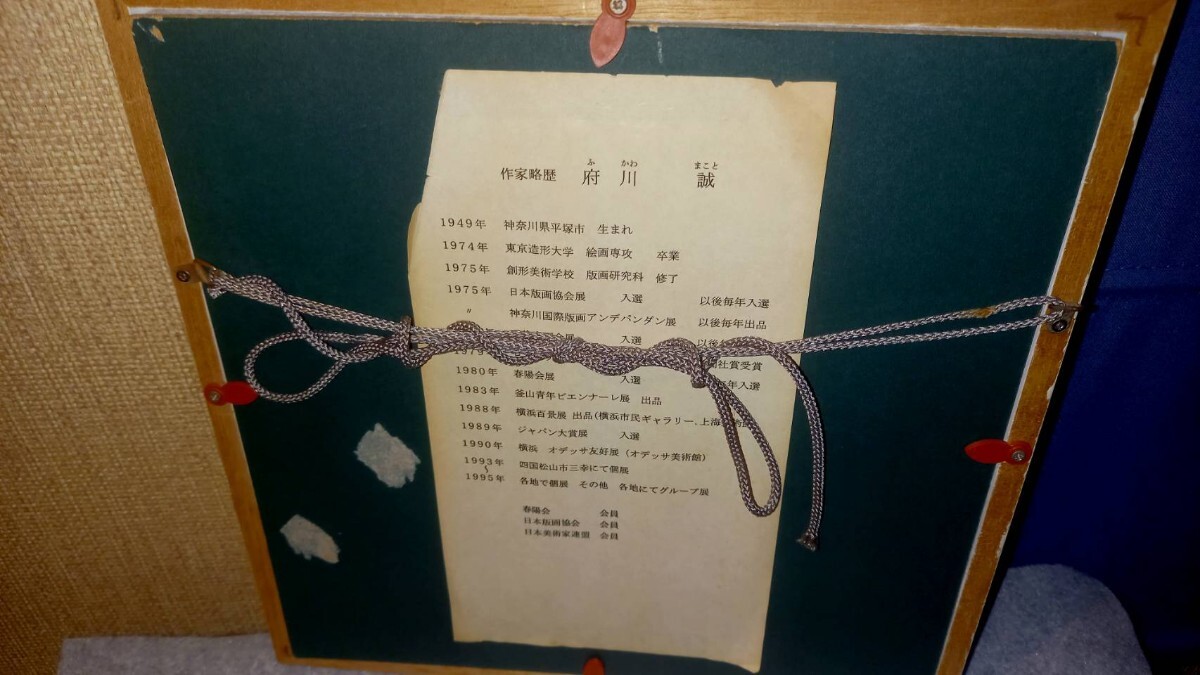 作家略歴 府川 誠
ふ かわ まこと
1949年 神奈川県平塚市 生まれ
1974年 東京造形大学 絵画専攻 卒業
1975年 創形美術学校 版画研究科 修了
1975年 日本版画協会展 入選 以後毎年入選
〃 神奈川国際版画アンデパンダン展 以後毎年出品
会展 入選 以後
社賞受賞
1980年 春陽会展 入選 年入選
1983年 釜山青年ビエンナーレ展 出品
1988年 横浜百景展 出品(横浜市民ギャラリー、上海
1989年 ジャパン大賞展 入選
1990年 横浜 オデッサ友好展(オデッサ美術館)
1993年 四国松山市三幸にて個展
〜
1995年 各地で個展 その他 各地にてグループ展
春陽会 会員
日本版画協会 会員
日本美術家連盟 会員